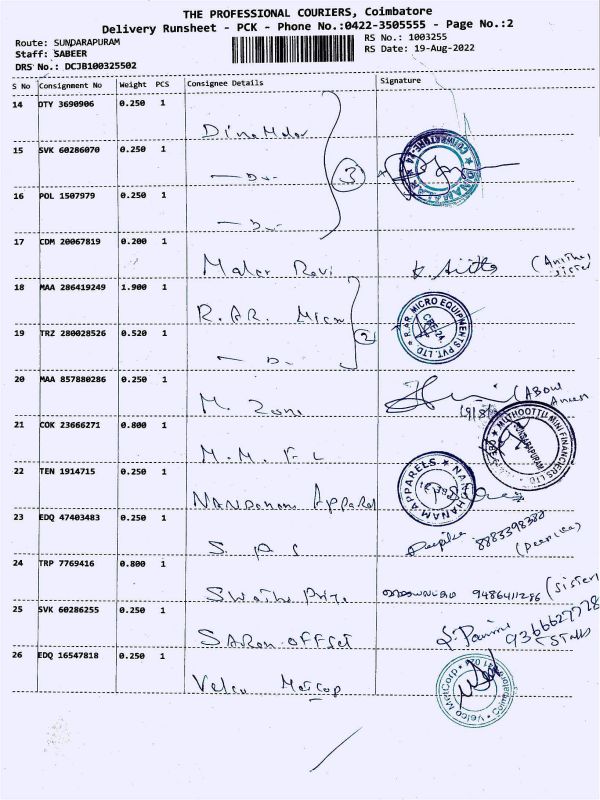 THE PROFESSIONAL COURIERS, Coimbatore
Delivery Runsheet - PCK - Phone No.:0422-3505555 - Page No.:2
Route: SUNDARAPURAM
RS No.: 1003255
Staff: SABEER
RS Date: 19-Aug-2022
DRS No.: DCJB100325502
S No Consignment No Weight PCS Consignee Details Signature
14 DTY 3690906 0.250 1
Dina Malar
15 SVK 60286070 0.250 1
3
16 POL 1507979 0.250 1
17 CDM 20067819 0.200 1
Malar Ravi
sister
18 MAA 286419249 1.900 1
R.AR. Micro
R.AR MICRO EQUIPMENTS PVT. LTD
CBE-24
19 TRZ 280028526 0.520 1
2
20 MAA 857880286 0.250 1
M.
19/8/
21 COK 23666271 0.800 1
M.M. F L
MUTHOOTTU MINI FINANCIERS LTD
SUNDARAPURAM
22 TEN 1914715 0.250 1
Nandhanam Apparel
NANDHANAM APPARELS
23 EDQ 47403483 0.250 1
S. P. S
Deepika 8883398382
24 TRP 7769416 0.800 1
9486411286 (sister)
25 SVK 60286255 0.250 1
Saron offset
9366627728
26 EDQ 16547818 0.250 1
Velco Metcop
Velco MetCorp Pvt Ltd Coimbatore